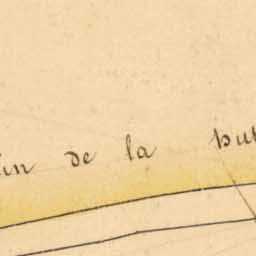 in de la but